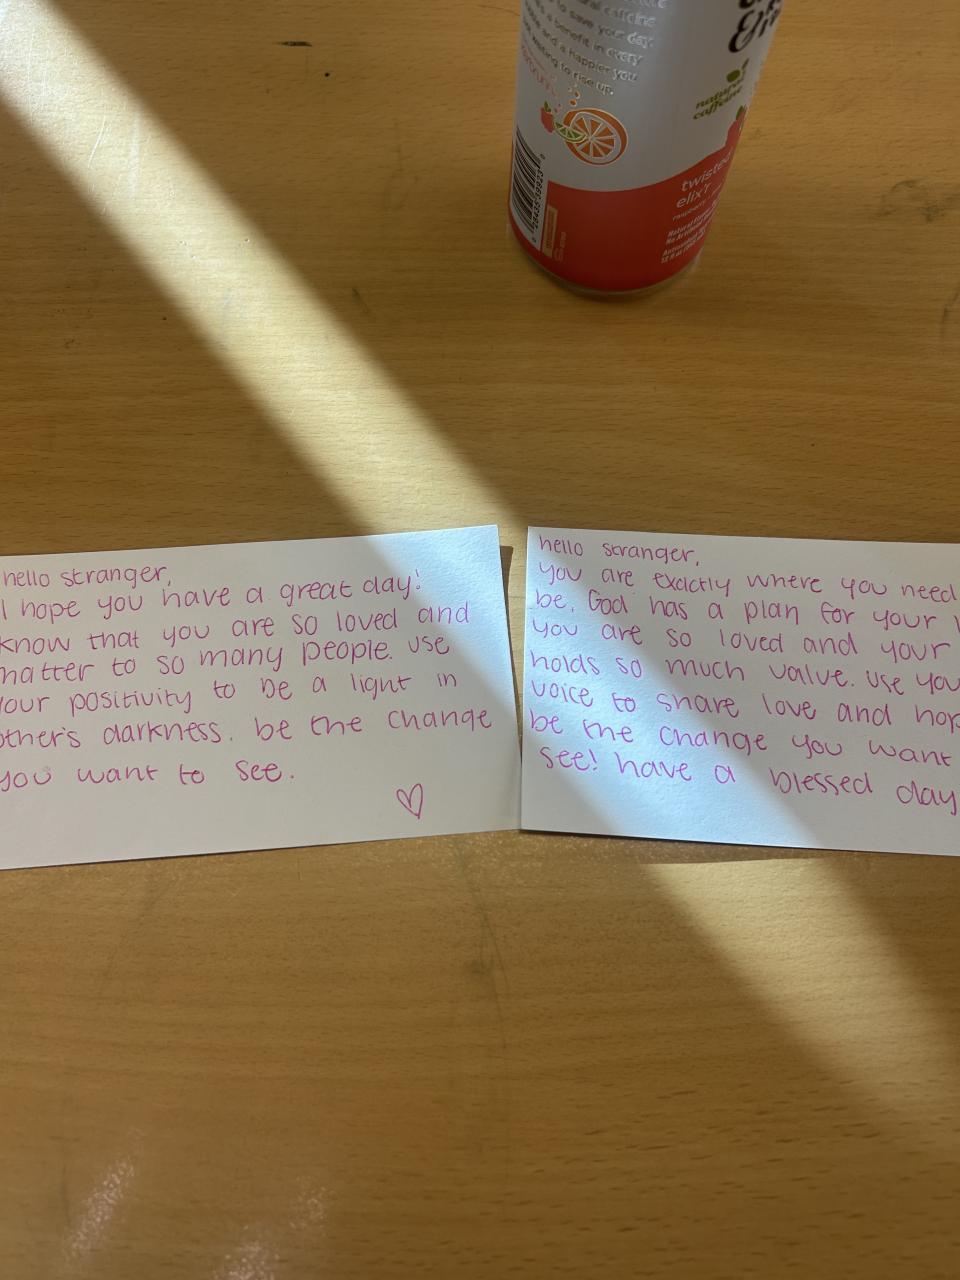 to save your day.
a benefit in every
and a happier you
waiting to rise up.
natural
caffeine
twisted
elix'r
raspberry
hello stranger,
I hope you have a great day!
know that you are so loved and
matter to so many people. use
your positivity to be a light in
other's darkness. be the change
you want to see.
hello stranger,
you are exactly where you need
be. God has a plan for your
you are so loved and your
holds so much value. use
voice to share love and
be the change you want
see! have a blessed day